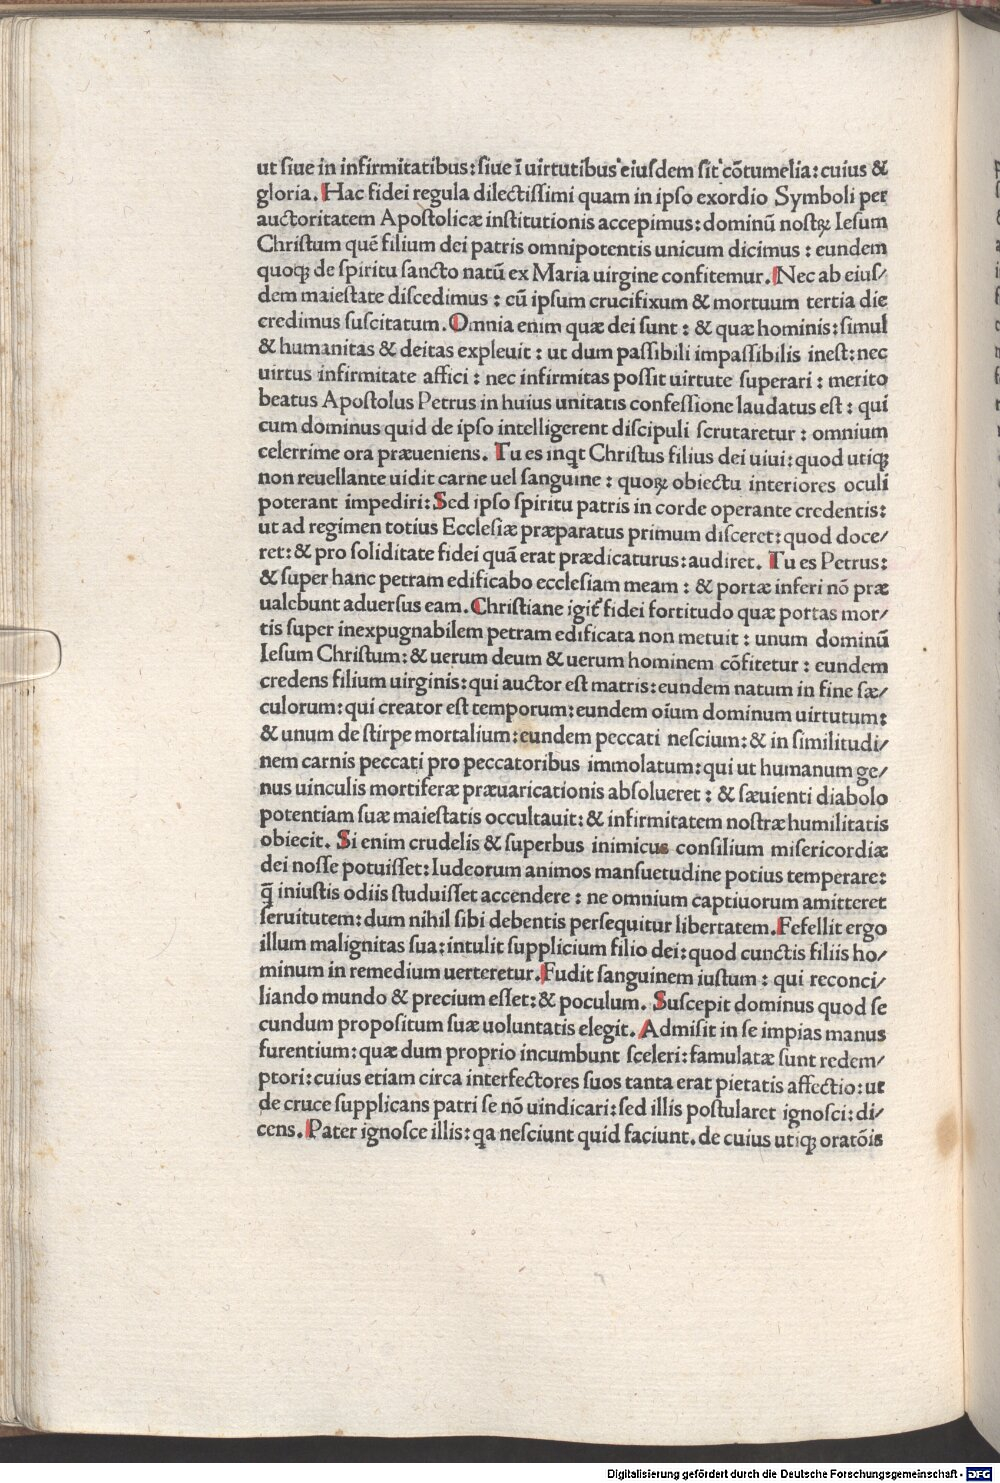 ut siue in infirmitatibus: siue ī uirtutibus eiusdem sit cōtumelia: cuius &
gloria. Hac fidei regula dilectissimi quam in ipso exordio Symboli per
auctoritatem Apostolicæ institutionis accepimus: dominū nostꝝ Iesum
Christum quē filium dei patris omnipotentis unicum dicimus: eundem
quoqꝫ de spiritu sancto natū ex Maria uirgine confitemur. Nec ab eius/
dem maiestate discedimus: cū ipsum crucifixum & mortuum tertia die
credimus suscitatum. Omnia enim quæ dei sunt: & quæ hominis: simul
& humanitas & deitas expleuit: ut dum passibili impassibilis inest: nec
uirtus infirmitate affici: nec infirmitas possit uirtute superari: merito
beatus Apostolus Petrus in huius unitatis confessione laudatus est: qui
cum dominus quid de ipso intelligerent discipuli scrutaretur: omnium
celerrime ora præueniens. Tu es inqt Christus filius dei uiui: quod utiqꝫ
non reuellante uidit carne uel sanguine: quoꝝ obiectu interiores oculi
poterant impediri: Sed ipso spiritu patris in corde operante credentis:
ut ad regimen totius Ecclesiæ præparatus primum disceret: quod doce/
ret: & pro soliditate fidei quā erat prædicaturus: audiret. Tu es Petrus:
& super hanc petram edificabo ecclesiam meam: & portæ inferi nō præ
ualebunt aduersus eam. Christiane igit̄ fidei fortitudo quæ portas mor/
tis super inexpugnabilem petram edificata non metuit: unum dominū
Iesum Christum: & uerum deum & uerum hominem cōfitetur: eundem
credens filium uirginis: qui auctor est matris: eundem natum in fine sæ/
culorum: qui creator est temporum: eundem oīum dominum uirtutum:
& unum de stirpe mortalium: eundem peccati nescium: & in similitudi/
nem carnis peccati pro peccatoribus immolatum: qui ut humanum ge/
nus uinculis mortiferæ præuaricationis absolueret: & sæuienti diabolo
potentiam suæ maiestatis occultauit: & infirmitatem nostræ humilitatis
obiecit. Si enim crudelis & superbus inimicus consilium misericordiæ
dei nosse potuisset: Iudeorum animos mansuetudine potius temperare:
q̄ iniustis odiis studuisset accendere: ne omnium captiuorum amitteret
seruitutem: dum nihil sibi debentis persequitur libertatem. Fefellit ergo
illum malignitas sua: intulit supplicium filio dei: quod cunctis filiis ho/
minum in remedium uerteretur. Fudit sanguinem iustum: qui reconci/
liando mundo & precium esset: & poculum. Suscepit dominus quod se
cundum propositum suæ uoluntatis elegit. Admisit in se impias manus
furentium: quæ dum proprio incumbunt sceleri: famulatæ sunt redem/
ptori: cuius etiam circa interfectores suos tanta erat pietatis affectio: ut
de cruce supplicans patri se nō uindicari: sed illis postularet ignosci: di/
cens. Pater ignosce illis: qa nesciunt quid faciunt. de cuius utiqꝫ oratōis
Digitalisierung gefördert durch die Deutsche Forschungsgemeinschaft - DFG